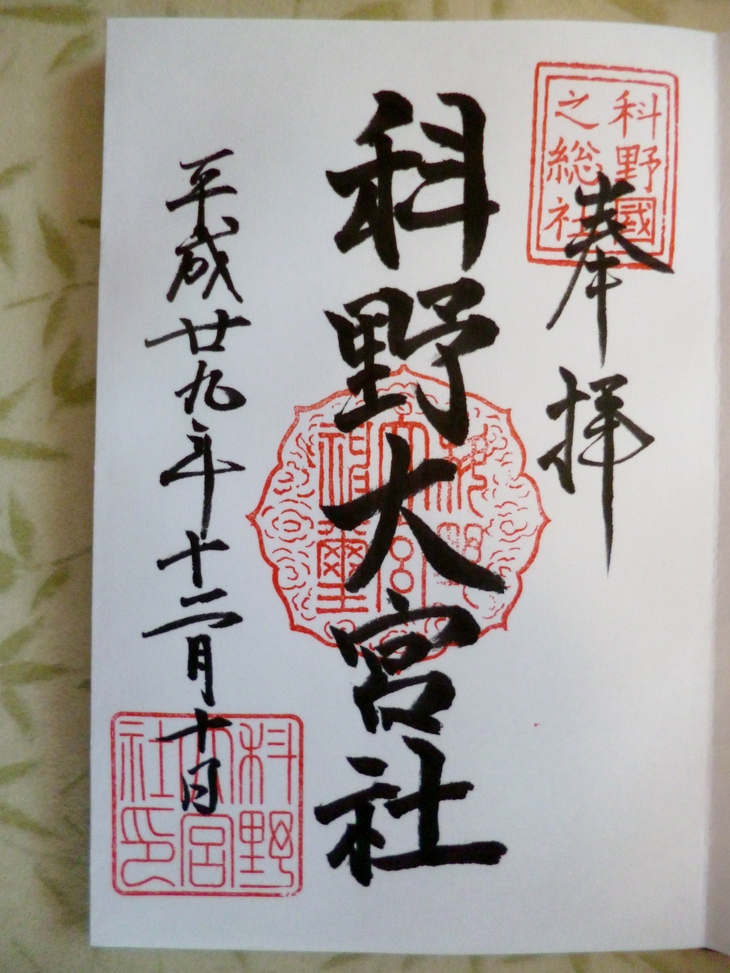 科野國
之総社
奉拝
科野大宮社
平成廿九年十二月十日
科野
大宮
社印